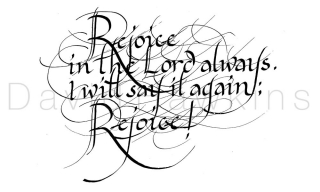 Rejoice
in the Lord always.
I will say it again:
Rejoice!